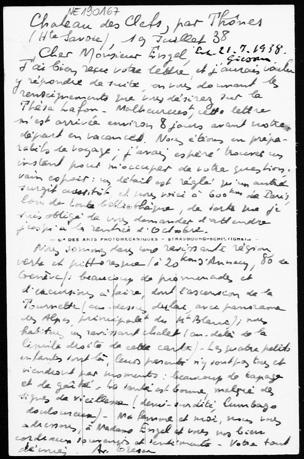 NE130167
Chateau des Clefs, par Thônes
(Hte Savoie) 19 Juillet 38
Cher Monsieur Engel,
21.7.1938.
J'ai bien reçu votre lettre, et j'aurais voulu
y répondre de suite, en vous donnant les
renseignements que vous désirez sur la
Thèse Lafon. Malheureus, votre lettre
m'est arrivée environ 8 jours avant notre
départ en vacances. Nous étions en prépa-
ratifs de voyage; j'avais espéré trouver un
instant pour m'occuper de votre question.
vain espoir: un détail est réglé qu'un autre
surgit aussitôt et me voici à 600 km de Paris,
loin de toute bibliothèque, de sorte que je
suis obligé de vous demander d'attendre
jusqu'à la rentrée d'Octobre.
DES ARTS PHOTOMECANIQUES - STRASBOURG-SCHILTIGHEIM
Nous sommes dans une ravissante région
verte et pittoresque (à 20 km Annecy, 80 de
Genève); beaucoup de promenades et
d'excursions à faire, dont l'ascension de la
Tournette (au-dessus du lac, avec panorama
des Alpes, principalt du Mt Blanc); nous
habitons un ravissant chalet (au-delà de la
limite droite de cette carte). Les quatre petits
enfants sont là; leurs parents n'y sont pas tous et
viendront par moments: beaucoup de tapage
et de gaîté. La santé est bonne, malgré des
signes de vieillesse (demi-surdité, lumbago
douloureux). Ma femme et moi, nous vous
adressons, à Madame Engel et vous nos bien
cordiaux souvenirs et sentiments. Votre tout
dévoué,